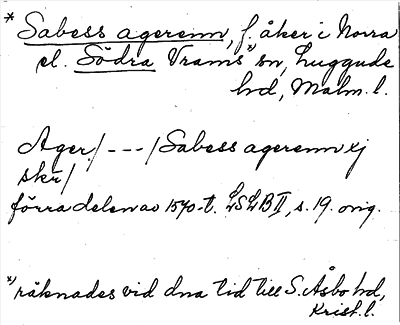 * Sabess agerenn, f. åker i Norra
el. Södra Vrams*) sn, Luggude
hd, Malm. l.
Ager/---/Sabess agerenn xj
skr/
förra delen av 1570-t. LSLB II, s. 19. orig.
*) räknades vid dna tid till S. Åsbo hd,
Krist. l.